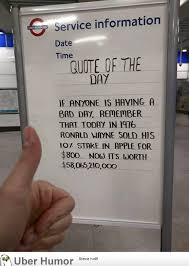 Service information
Date
Time
QUOTE OF THE
DAY
IF ANYONE IS HAVING A
BAD DAY, REMEMBER
THAT TODAY IN 1976
RONALD WAYNE SOLD HIS
10% STAKE IN APPLE FOR
$800. NOW ITS WORTH
$58,065,210,000
Uber Humor